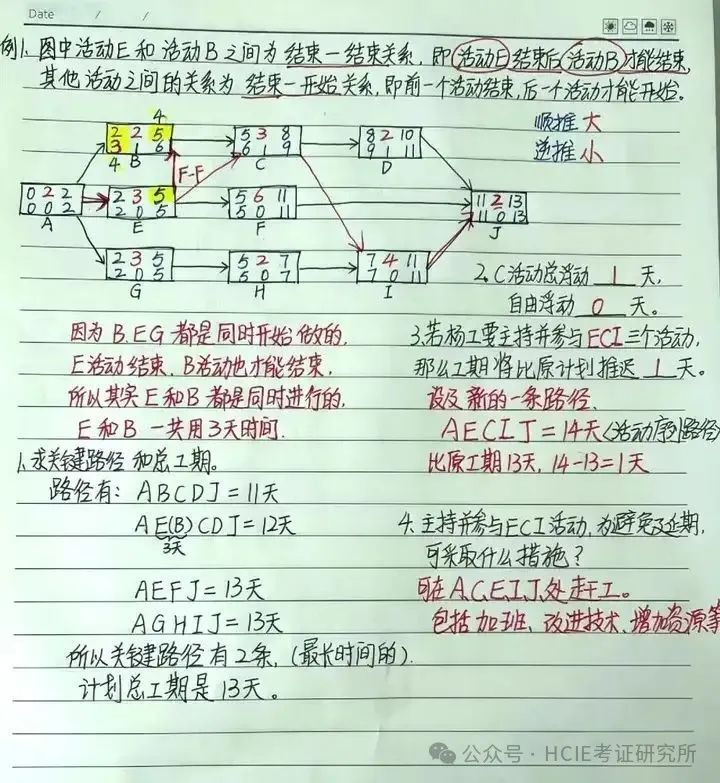 Date / /
例1. 图中活动E和活动B之间为结束一结束关系,即活动E结束后活动B才能结束,
其他活动之间的关系为结束一开始关系,即前一个活动结束,后一个活动才能开始。
顺推大
逆推小
4
2 2 5
3 1 6
4 B
5 3 8
6 1 9
C
8 2 10
9 1 11
D
F-F
0 2 2
0 0 2
A
2 3 5
2 0 5
E
5 6 11
5 0 11
F
11 2 13
11 0 13
J
2 3 5
2 0 5
G
5 2 7
5 0 7
H
7 4 11
7 0 11
I
2. C活动总浮动 1 天,
自由浮动 0 天。
因为B.EG都是同时开始做的,
E活动结束,B活动也才能结束,
所以其实E和B都是同时进行的,
E和B一共用3天时间.
3.若杨工要主持并参与ECI三个活动,
那么工期将比原计划推迟 1 天。
设及新的一条路径,
AECIJ=14天(活动序列路径)
比原工期13天, 14-13=1天
1.求关键路径和总工期。
路径有: ABCDJ=11天
AE(B)CDJ=12天
3天
AEFJ=13天
AGHIJ=13天
所以关键路径有2条,(最长时间的).
计划总工期是13天。
4.主持并参与ECI活动,为避免延期,
可采取什么措施?
可在A,C,E,I,J,处赶工。
包括加班、改进技术、增加资源等
公众号·HCIE考证研究所